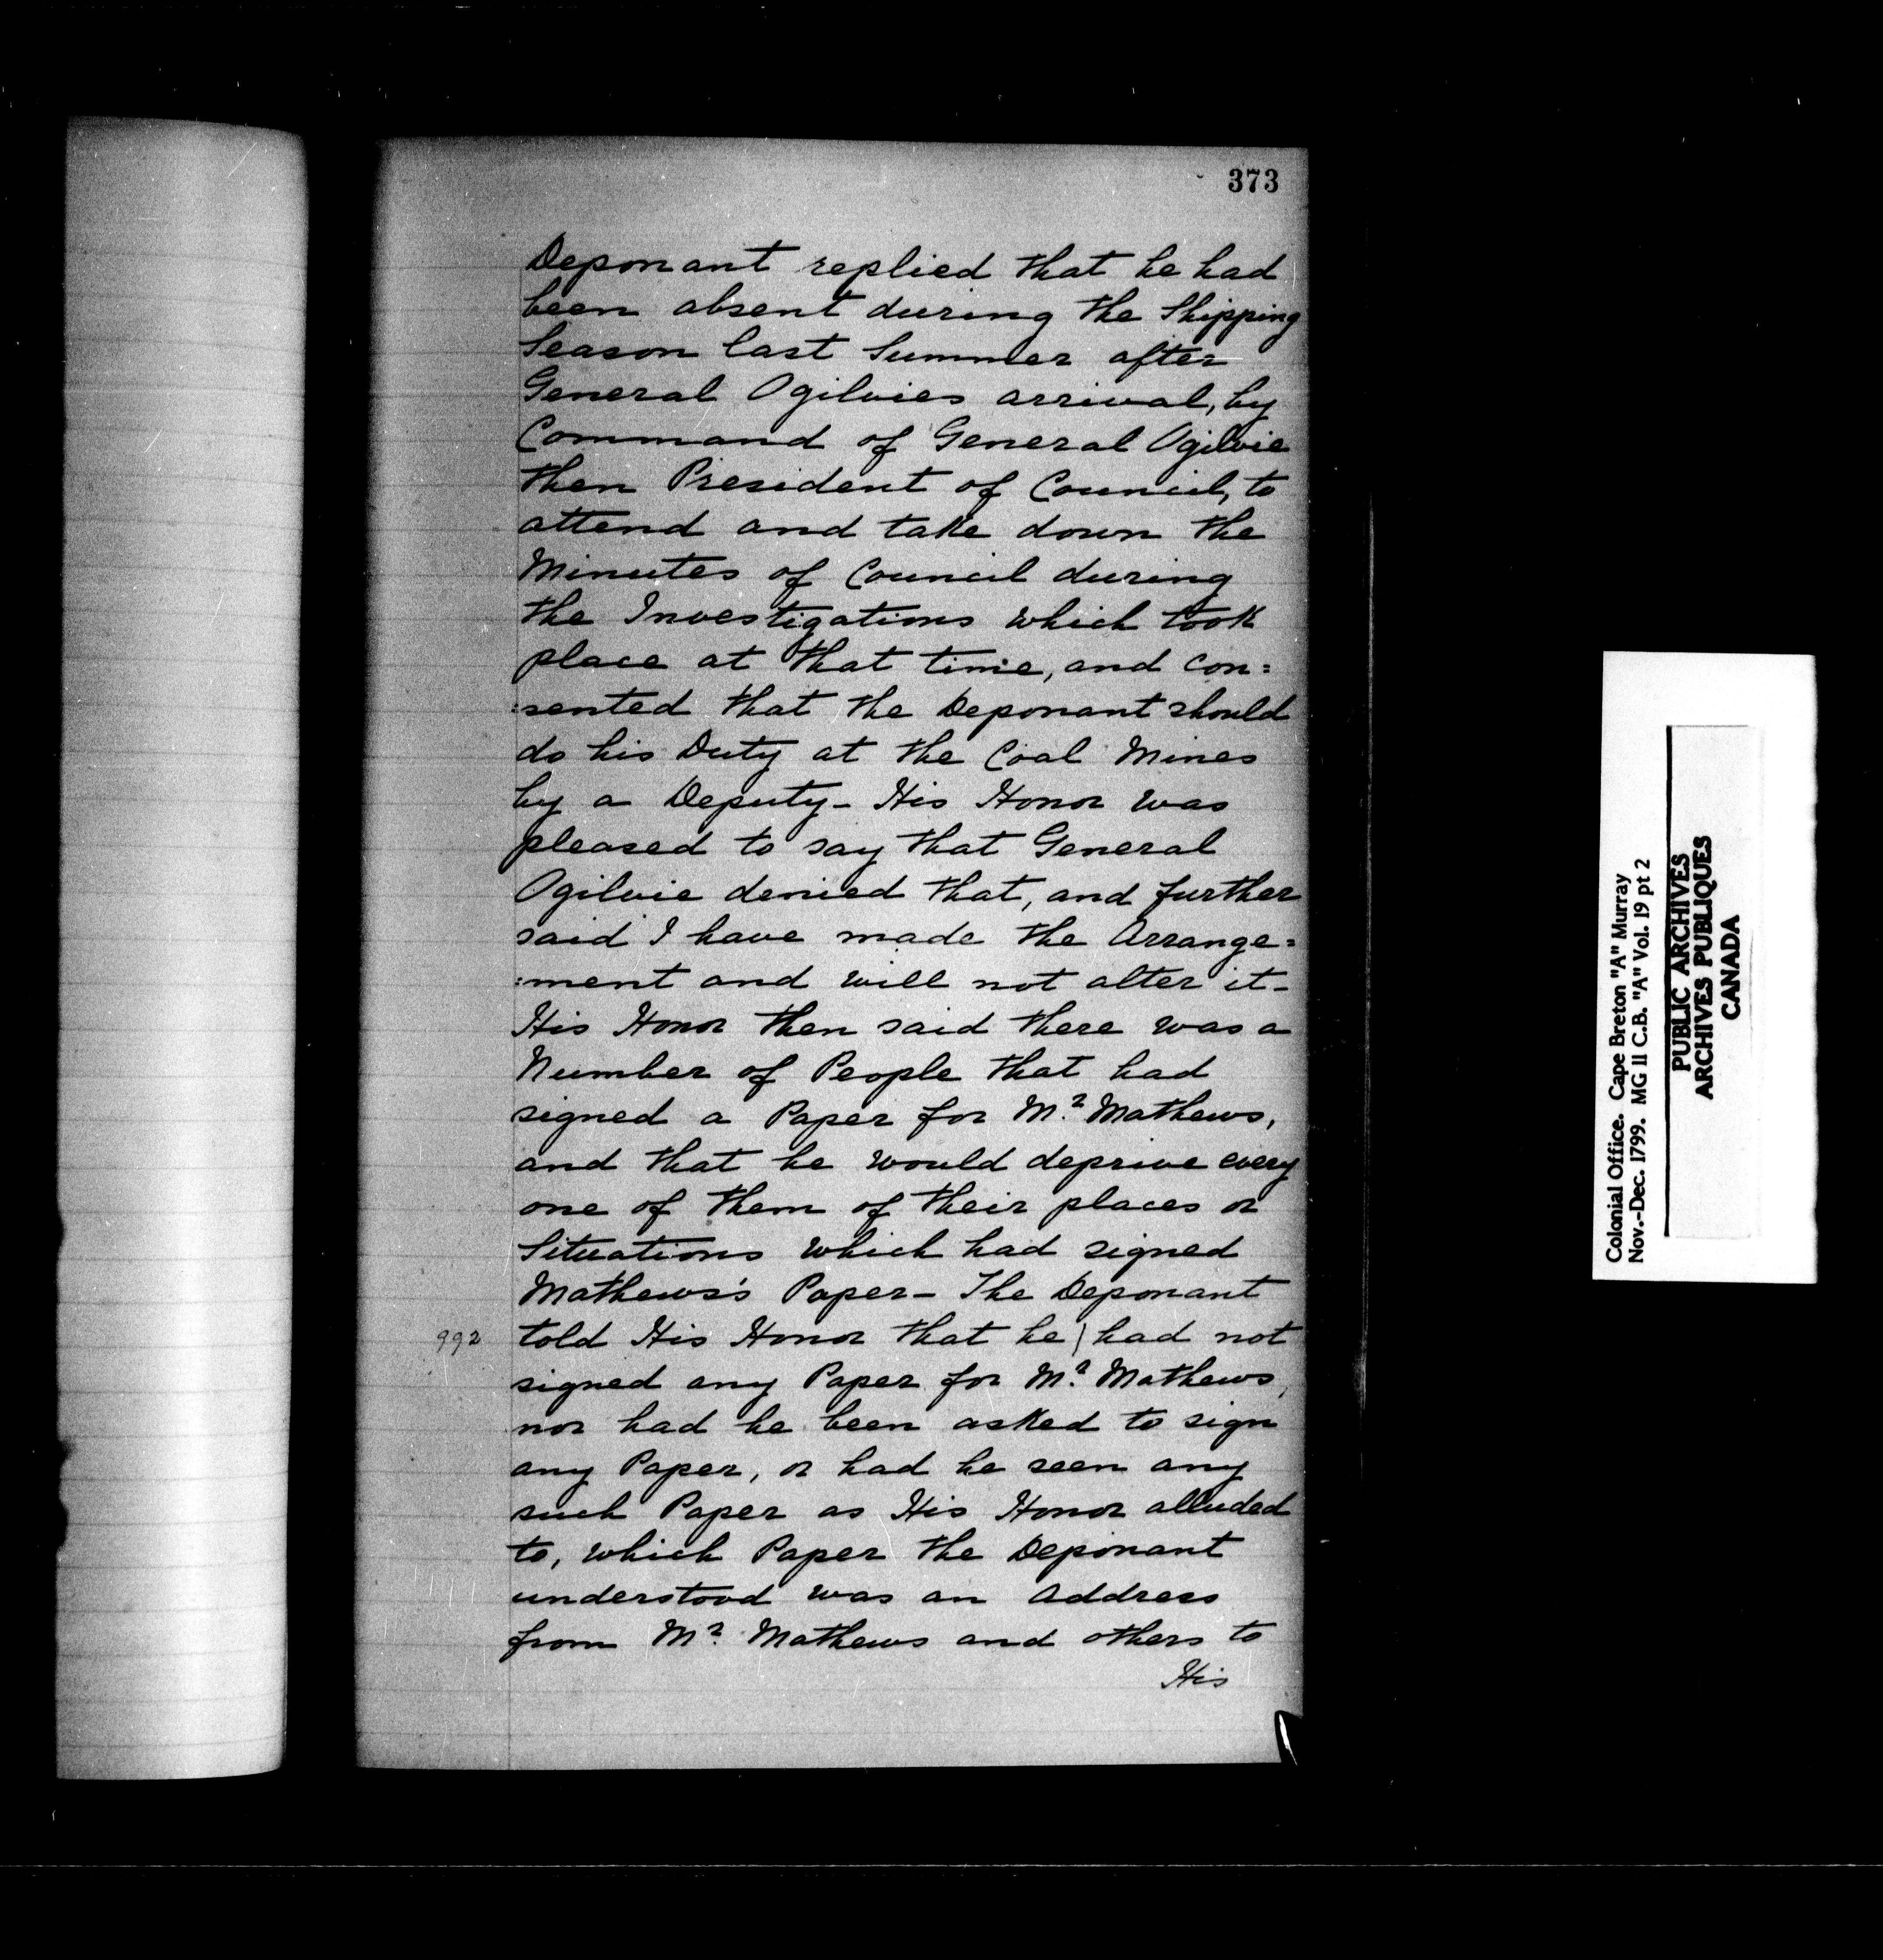 373
Deponant replied that he had
been absent during the Shipping
Season last Summer after
General Ogilvies arrival, by
Command of General Ogilvie
then President of Council, to
attend and take down the
Minutes of Council during
the Investigations which took
place at that time, and con=
=sented that the Deponant should
do his Duty at the Coal Mines
by a Deputy- His Honor was
pleased to say that General
Ogilvie denied that, and further
said I have made the Arrange=
=ment and will not alter it-
His Honor then said there was a
Number of People that had
signed a Paper for Mr. Mathews,
and that he would deprive every
one of them of their places or
Situations which had signed
Mathews's Paper- The Deponant
992 told His Honor that he | had not
signed any Paper for Mr. Mathews,
nor had he been asked to sign
any Paper, or had he seen any
such Paper as His Honor alluded
to, which Paper the Deponant
understood was an Address
from Mr. Mathews and others to
His
Colonial Office. Cape Breton "A" Murray
Nov.-Dec. 1799. MG 11 C.B. "A" Vol. 19 pt 2
PUBLIC ARCHIVES
ARCHIVES PUBLIQUES
CANADA